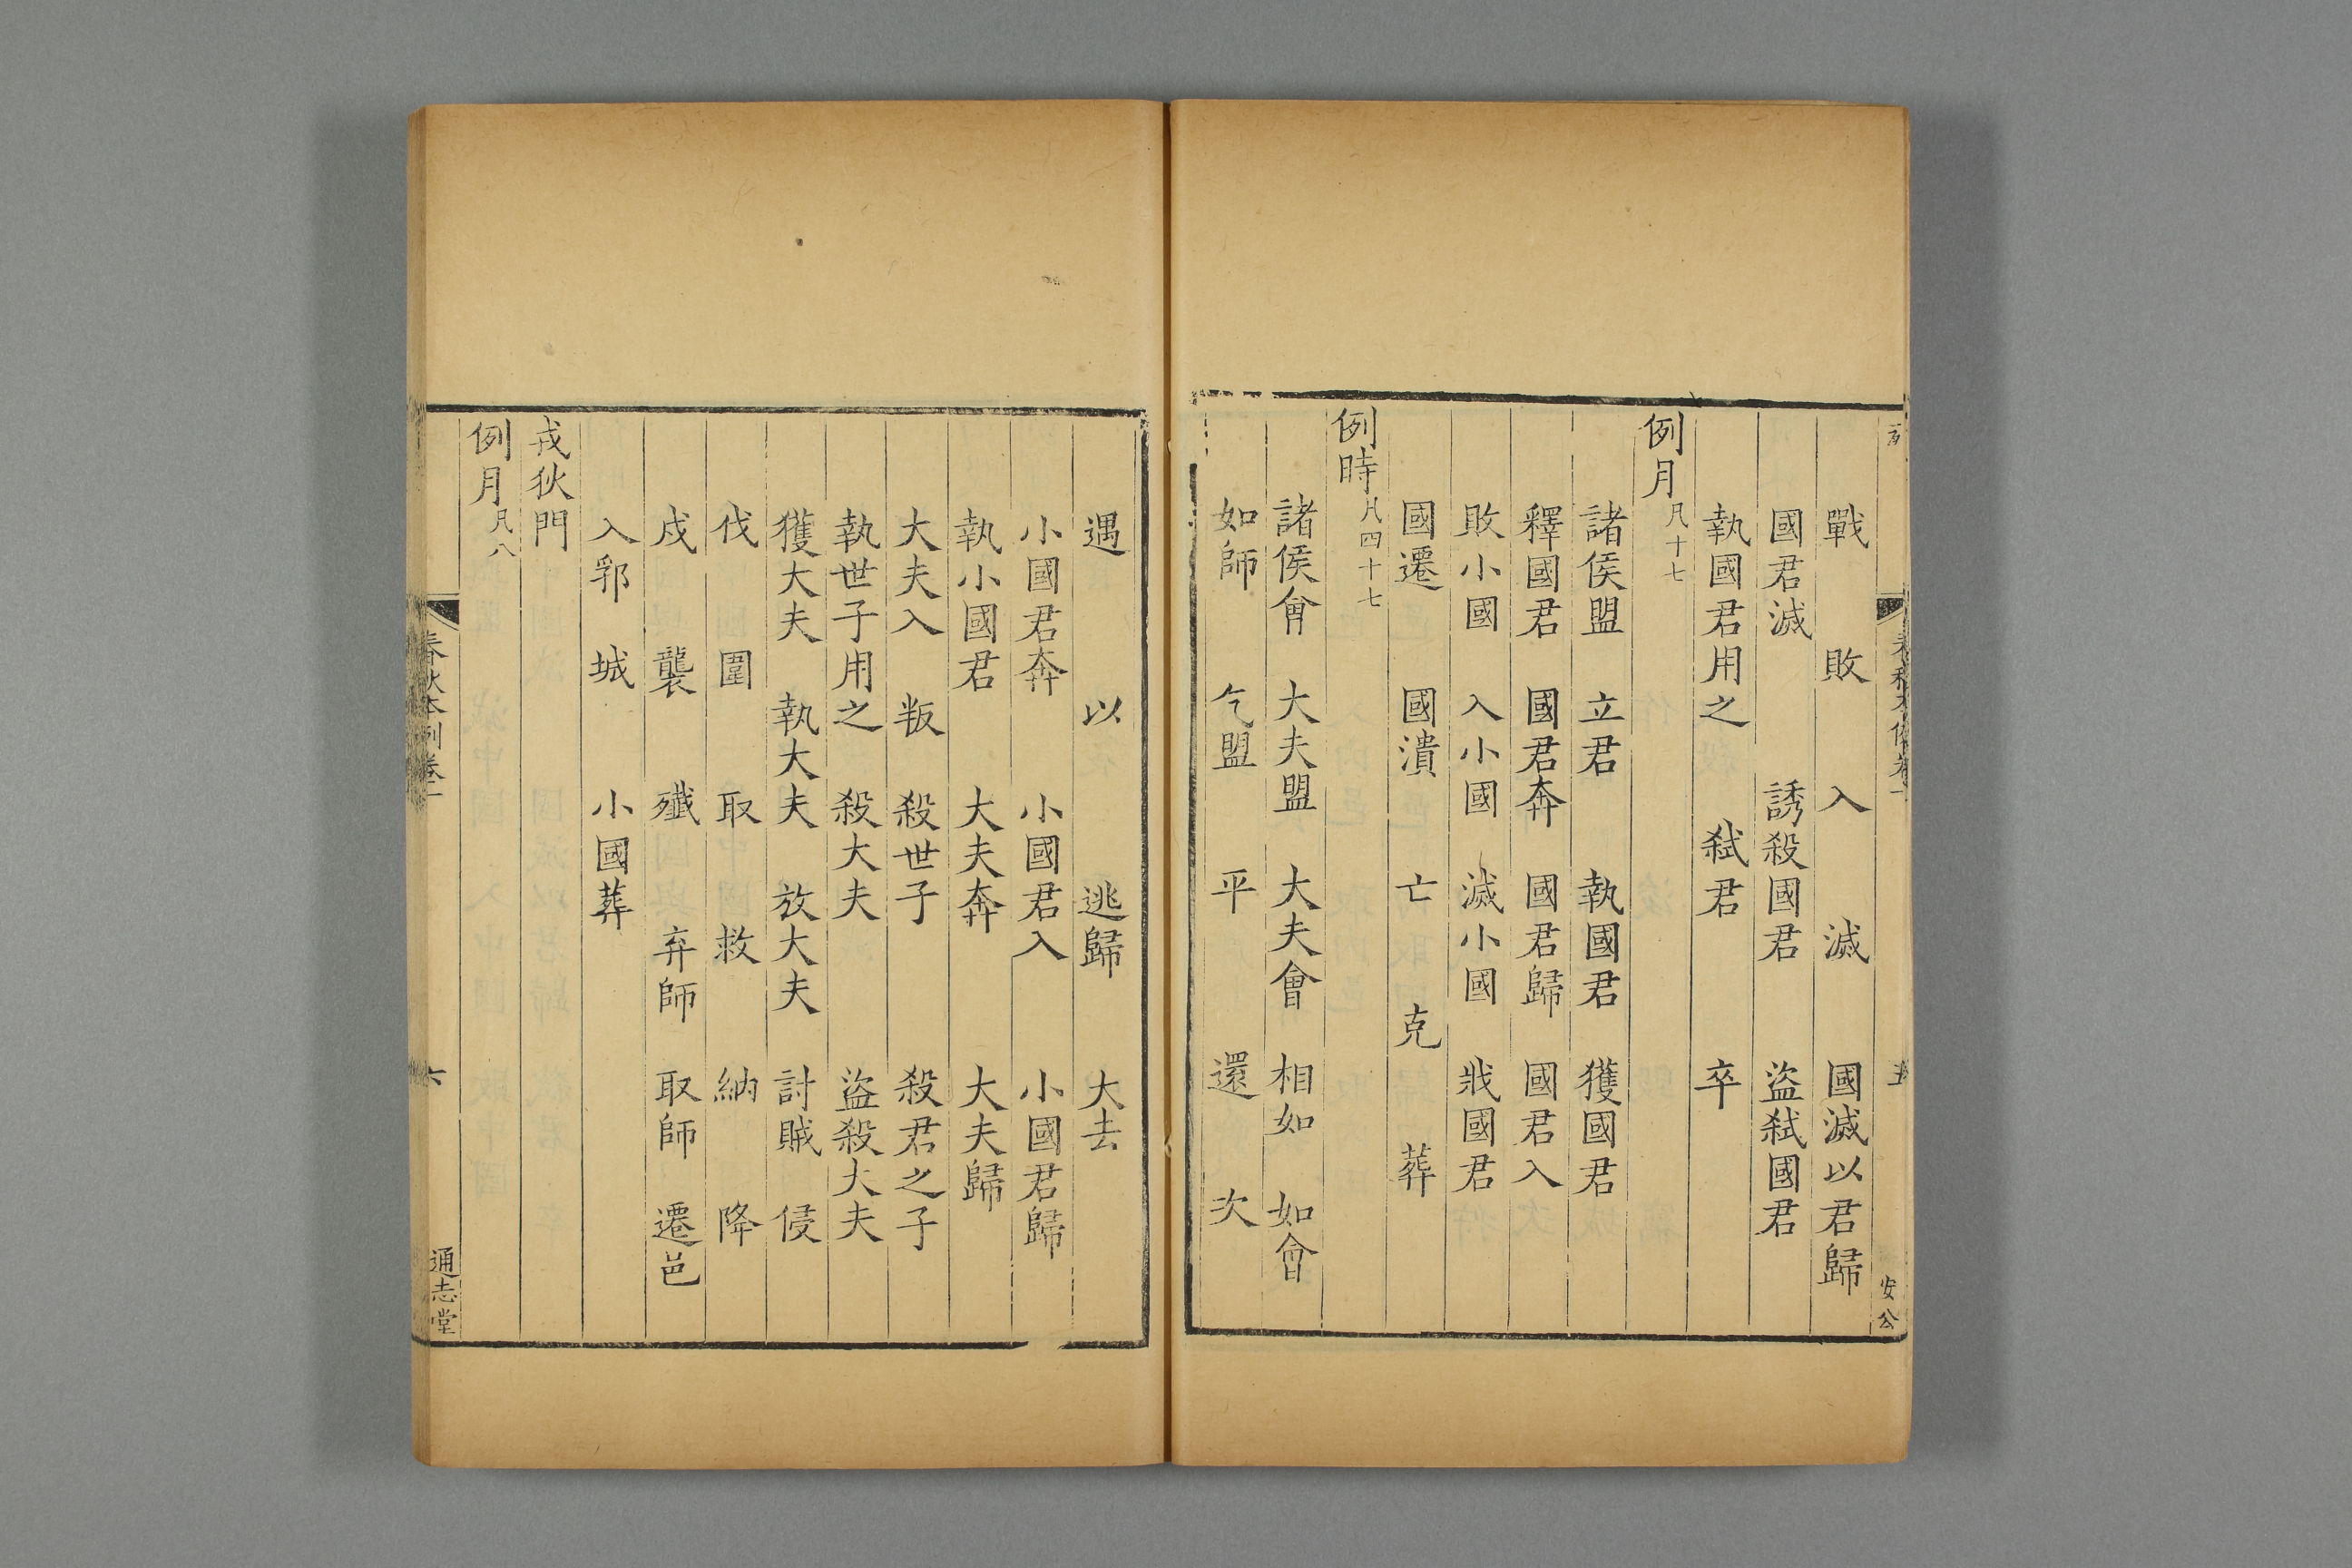 戰 敗 入 滅 國滅以君歸
國君滅 誘殺國君 盜弑國君
執國君用之 弑君 卒
例月凡十七
諸侯盟 立君 執國君 獲國君
釋國君 國君奔 國君歸 國君入
敗小國 入小國 滅小國 戕國君
國遷 國潰 亡 克 葬
例時凡四十七
諸侯會 大夫盟 大夫會 相如 如會
如師 乞盟 平 還 次
遇 以 逃歸 大去
小國君奔 小國君入 小國君歸
執小國君 大夫奔 大夫歸
大夫入 叛 殺世子 殺君之子
執世子用之 殺大夫 盜殺大夫
獲大夫 執大夫 放大夫 討賊 侵
伐 圍 取 救 納 降
戍 襲 殲 弃師 取師 遷邑
入郛 城 小國葬
戎狄門
例月凡八
春秋本例卷一
六
通志堂